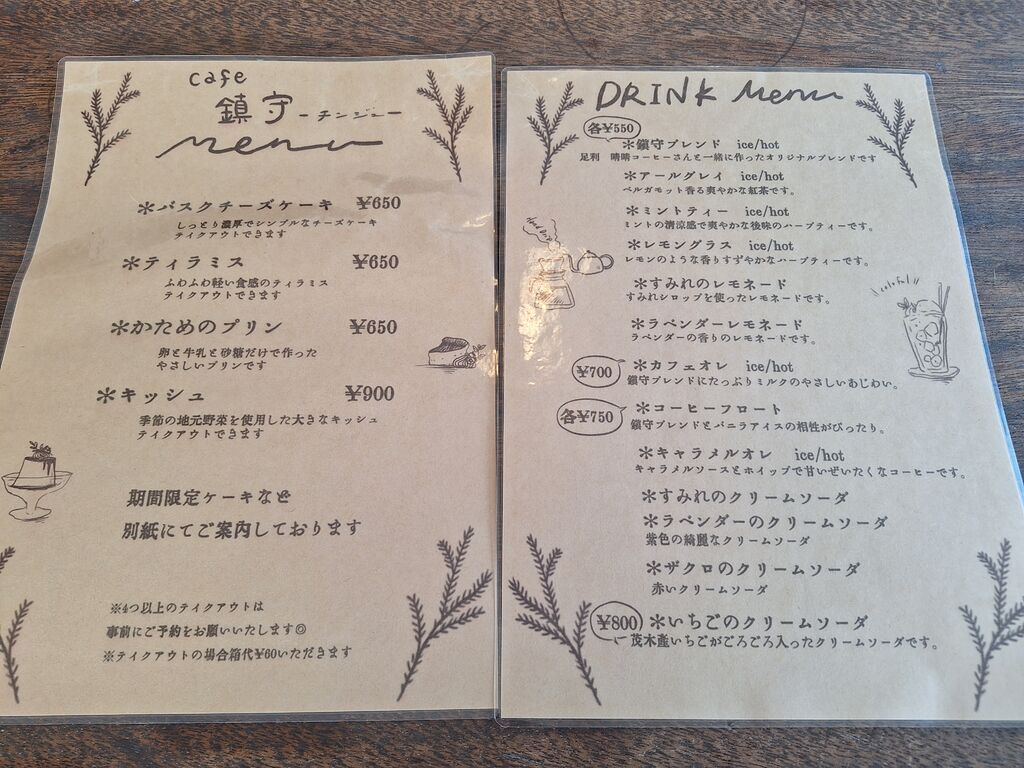 cafe
鎮守 -チンジュ-
menu
＊バスクチーズケーキ ¥650
しっとり濃厚でシンプルなチーズケーキ
テイクアウトできます
＊ティラミス ¥650
ふわふわ軽い食感のティラミス
テイクアウトできます
＊かためのプリン ¥650
卵と牛乳と砂糖だけで作った
やさしいプリンです
＊キッシュ ¥900
季節の地元野菜を使用した大きなキッシュ
テイクアウトできます
期間限定ケーキなど
別紙にてご案内しております
※4つ以上のテイクアウトは
事前にご予約をお願いいたします◎
※テイクアウトの場合箱代¥60いただきます
DRINK Menu
各¥550
＊鎮守ブレンド ice/hot
足利 晴晴コーヒーさんと一緒に作ったオリジナルブレンドです
＊アールグレイ ice/hot
ベルガモット香る爽やかな紅茶です。
＊ミントティー ice/hot
ミントの清涼感で爽やかな後味のハーブティーです。
＊レモングラス ice/hot
レモンのような香りすずやかなハーブティーです。
＊すみれのレモネード
すみれシロップを使ったレモネードです。
＊ラベンダーレモネード
ラベンダーの香りのレモネードです。
¥700
＊カフェオレ ice/hot
鎮守ブレンドにたっぷりミルクのやさしいあじわい。
各¥750
＊コーヒーフロート
鎮守ブレンドとバニラアイスの相性がぴったり。
＊キャラメルオレ ice/hot
キャラメルソースとホイップで甘いぜいたくなコーヒーです。
＊すみれのクリームソーダ
＊ラベンダーのクリームソーダ
紫色の綺麗なクリームソーダ
＊ザクロのクリームソーダ
赤いクリームソーダ
¥800
＊いちごのクリームソーダ
茂木産いちごがごろごろ入ったクリームソーダです。
colorful